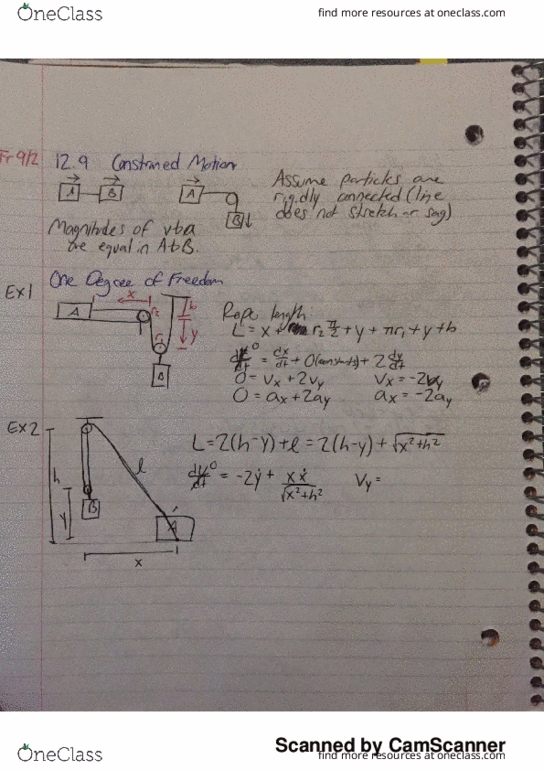 OneClass
find more resources at oneclass.com
Fr 9/2
12.9 Constrained Motion
A
B
A
B
Assume particles are
rigidly connected (line
does not stretch or sag)
Magnitudes of v & a
are equal in A & B.
Ex1
One Degree of Freedom
x
A
r₂
b
y
r₁
B
Rope length
L = x + r₂ π/2 + y + πr₁ + y + b
dL/dt⁰ = dx/dt + 0(constants) + 2 dy/dt
0 = Vx + 2Vy
Vx = -2Vy
0 = ax + 2ay
ax = -2ay
Ex2
L = 2(h-y) + ℓ = 2(h-y) + √x²+h²
dL/dt⁰ = -2ẏ + xẋ/√x²+h²
Vy =
h
ℓ
B
y
A
x
Scanned by CamScanner
OneClass
find more resources at oneclass.com